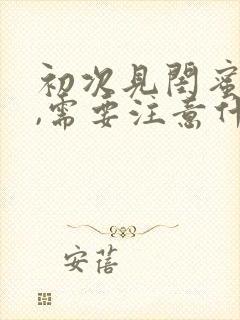 初次見閨蜜
,需要注意什
安蓓